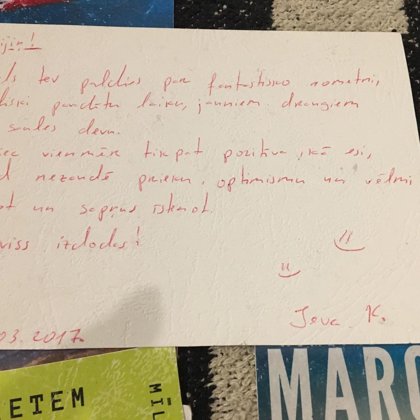 tev paldies par fantastisko nometni,
pavadītu laiku, jauniem draugiem
saules devu.
vienmēr tikpat pozitīva, kā esi,
nezaudē prieku, optimismu un vēlmi
un sapņus īstenot.
viss izdodas!
Ieva K.
03.2017.
ETEM
MĪL
MARC